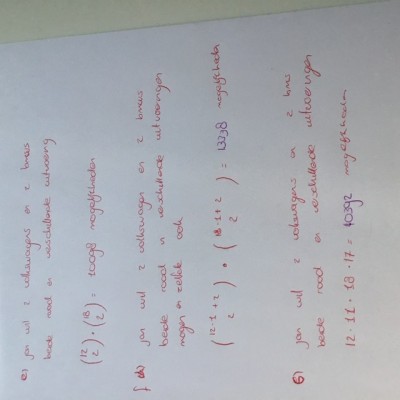 e) jan wil 2 volkswagens en 2 bmws
beide rood en verschillende uitvoering
(12 2) · (18 2) = 10098 mogelijkheden
f) jan wil 2 volkswagens en 2 bmws
beide rood in verschillende uitvoeringen
mogen in zelfde ook
(12-1+2 2) · (18-1+2 2) = 13338 mogelijkheden
G) jan wil 2 volkswagens en 2 bmws
beide rood en verschillende uitvoeringen
12 · 11 · 18 · 17 = 40392 mogelijkheden